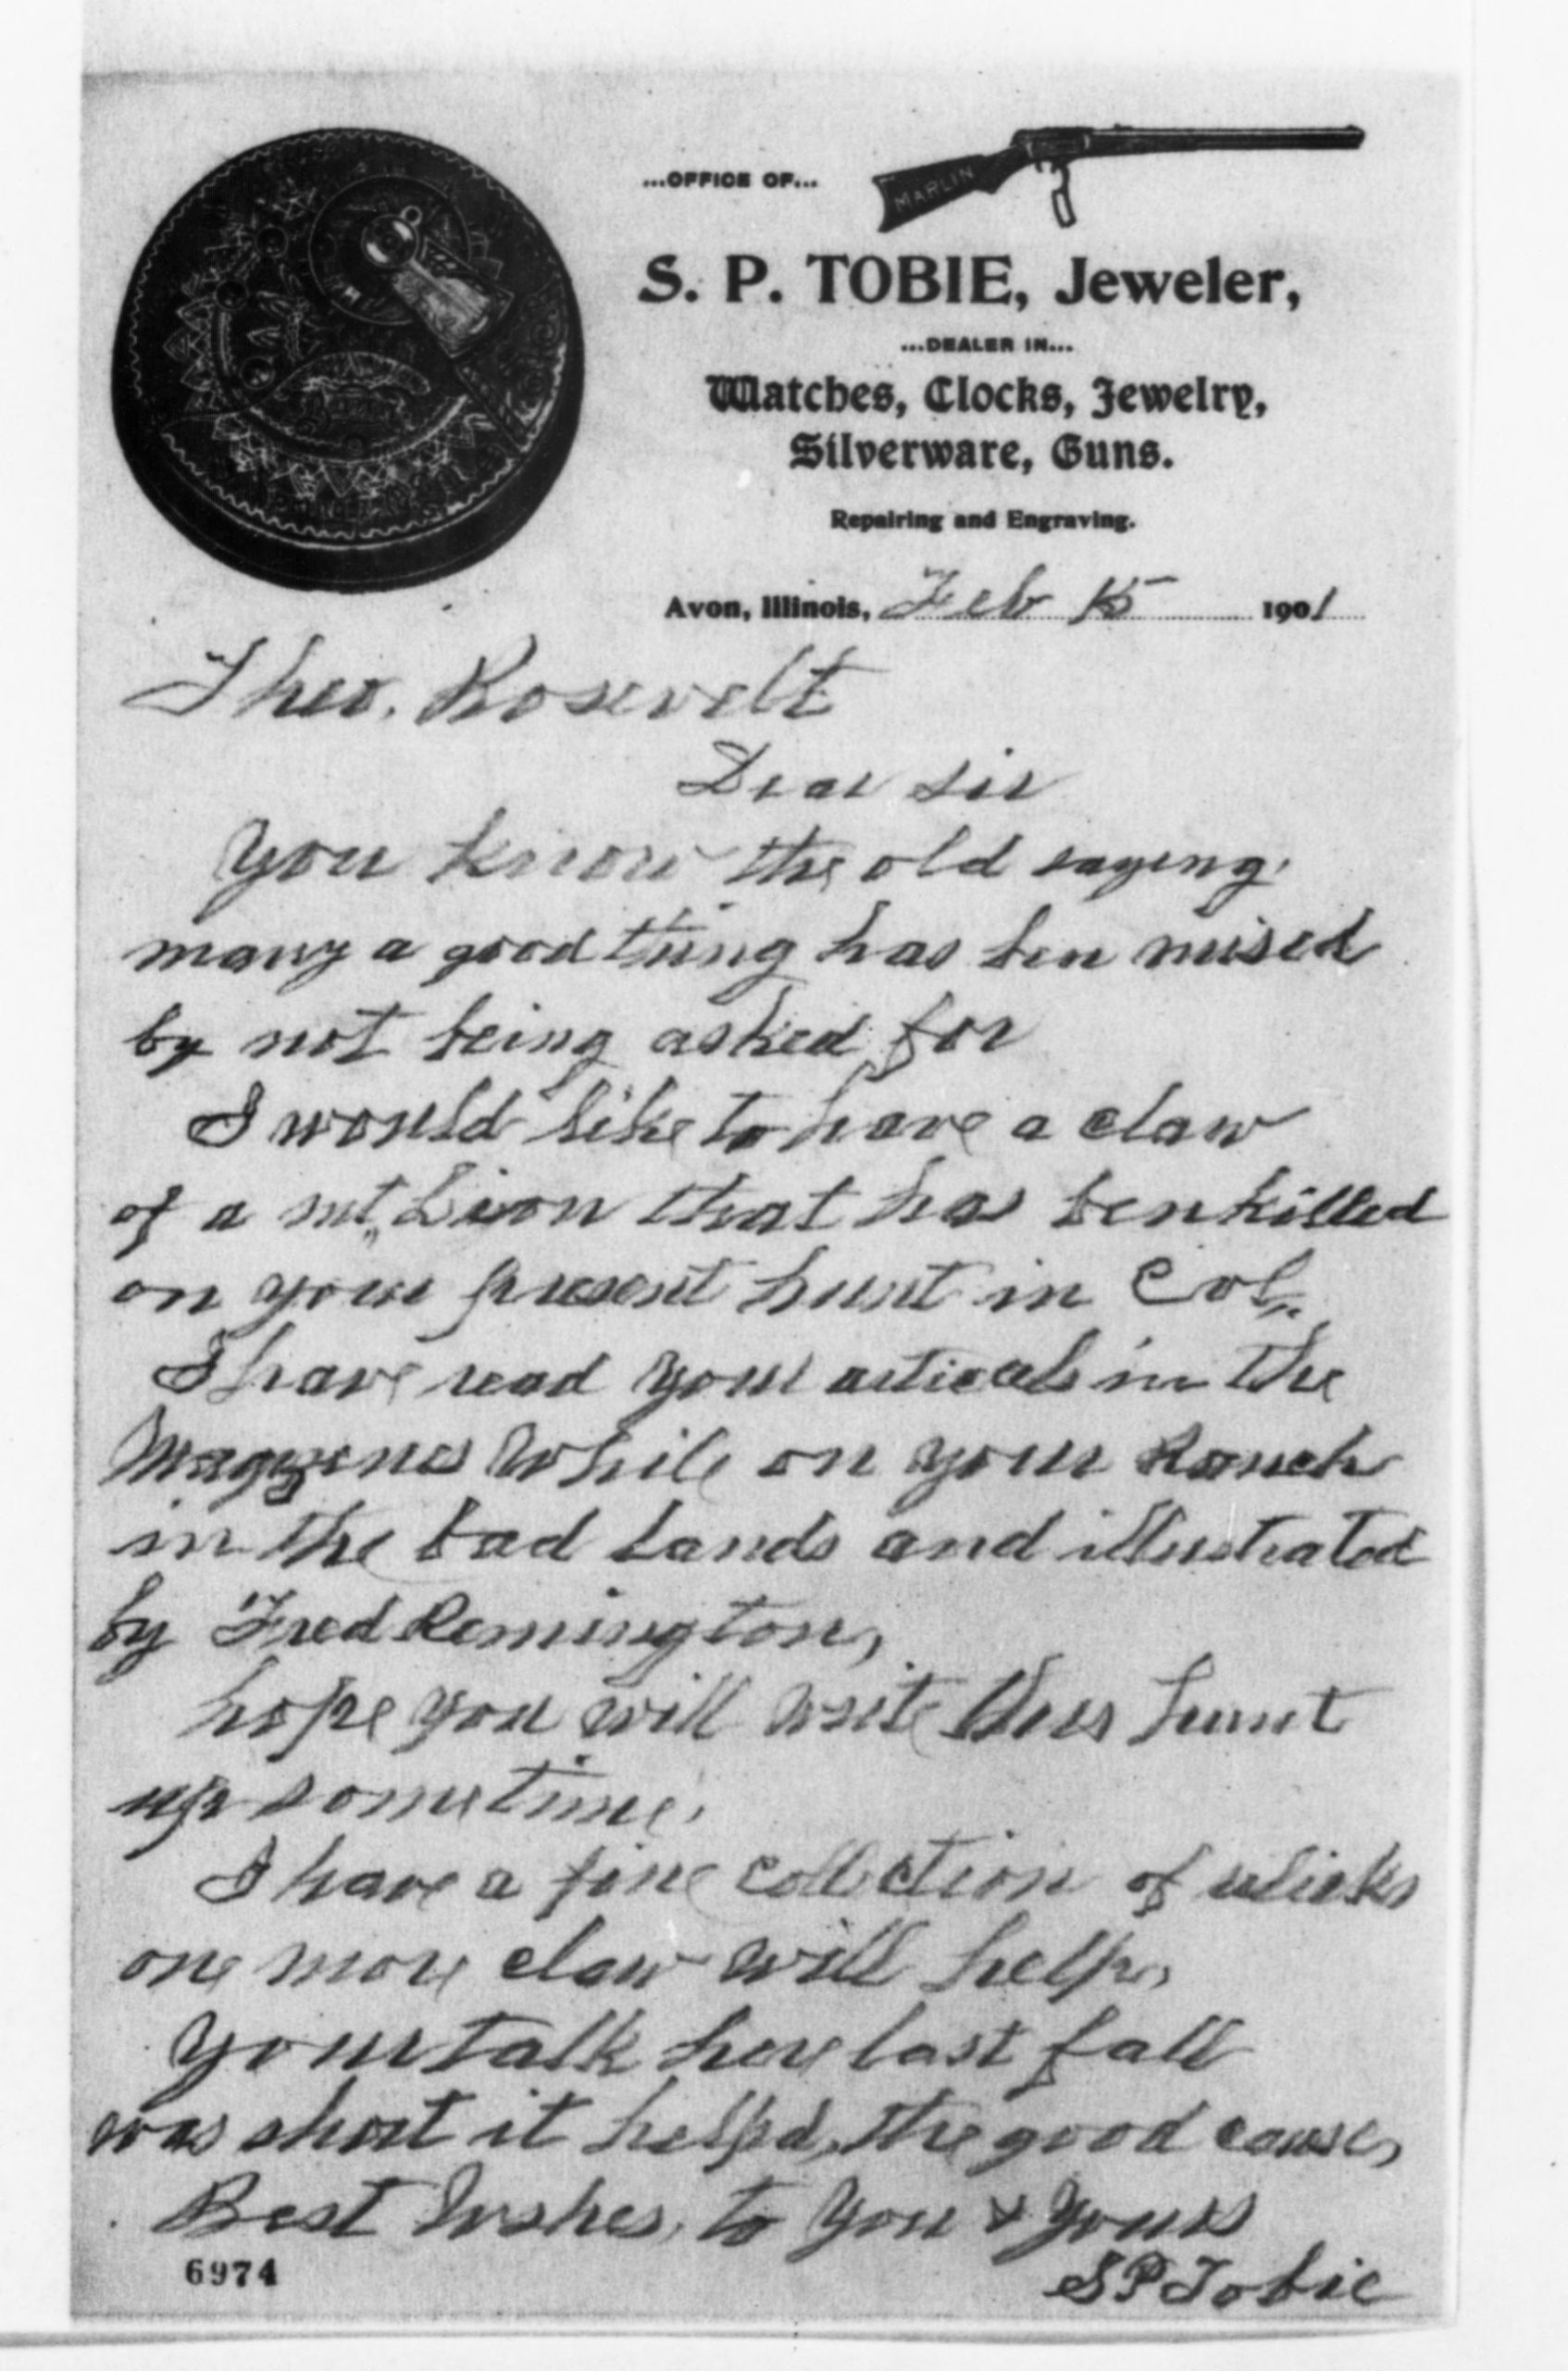 ...OFFICE OF...
MARLIN
S. P. TOBIE, Jeweler,
...DEALER IN...
Watches, Clocks, Jewelry,
Silverware, Guns.
Repairing and Engraving.
Avon, Illinois, Feb 15 1901
Theo. Rosevelt
Dear sir
You know the old saying.
many a good thing has ben mised
by not being asked for
I would like to have a claw
of a mt,, Lion that has ben killed
on your present hunt in Col,,
I have read your articals in the
Magzenes While on your Ranch
in the bad Lands and illustrated
by Fred Remington,
hope you will write this hunt
up sometime.
I have a fine collection of relicks
one more claw will help,
Your talk here last fall
was short it helpd, the good cause,
Best Wishes, to You & Yours
6974
SPTobie